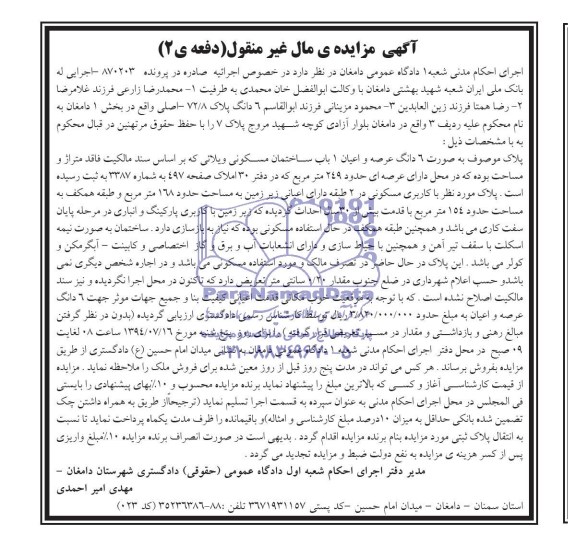 آگهی مزایده ی مال غیر منقول(دفعه ی۲)
اجرای احکام مدنی شعبه۱ دادگاه عمومی دامغان در نظر دارد در خصوص اجرائیه صادره در پرونده ۸۷۰۲۰۳ -اجرایی له
بانک ملی ایران شعبه شهید بهشتی دامغان با وکالت ابوالفضل خان محمدی به طرفیت ۱- محمدرضا زارعی فرزند غلامرضا
۲- رضا همتا فرزند زین العابدین ۳- محمود مزینانی فرزند ابوالقاسم ۶ دانگ پلاک ۷۲/۸ -اصلی واقع در بخش ۱ دامغان به
نام محکوم علیه ردیف ۳ واقع در دامغان بلوار آزادی کوچه شهید مروج پلاک ۷ را با حفظ حقوق مرتهنین در قبال محکوم
به با مشخصات ذیل :
پلاک موصوف به صورت ۶ دانگ عرصه و اعیان ۱ باب ساختمان مسکونی ویلائی که بر اساس سند مالکیت فاقد متراژ و
مساحت بوده که در محل دارای عرصه ای حدود ۲۴۹ متر مربع که در دفتر ۳۰ املاک صفحه ۴۹۷ به شماره ۳۳۸۷ به ثبت رسیده
است . پلاک مورد نظر با کاربری مسکونی در ۲ طبقه دارای اعیانی زیر زمین به مساحت حدود ۱۶۸ متر مربع و طبقه همکف به
مساحت حدود ۱۵۴ متر مربع با قدمت احداث گردیده که زیر زمین با کاربری پارکینگ و انباری در مرحله پایان
سفت کاری می باشد و همچنین طبقه همکف در حال استفاده مسکونی بوده که نیاز به بازسازی دارد . ساختمان به صورت نیمه
اسکلت با سقف تیر آهن و همچنین با حیاط سازی و دارای انشعابات آب و برق و گاز اختصاصی و کابینت - آبگرمکن و
کولر می باشد . این پلاک در حال حاضر در تصرف مالک و مورد استفاده مسکونی می باشد و در اجاره شخص دیگری نمی
باشدو حسب اعلام شهرداری در ضلع جنوب مقدار ۰/۲۰ سانتی متر تعریض دارد که تاکنون در محل اجرا نگردیده و نیز سند
مالکیت اصلاح نشده است . که با توجه به موقعیت کیفیت بنا و جمیع جهات موثر جهت ۶ دانگ
عرصه و اعیان به مبلغ حدود ۳/۸۴۰/۰۰۰/۰۰۰ ریال توسط کارشناس رسمی دادگستری ارزیابی گردیده (بدون در نظر گرفتن
مبالغ رهنی و بازداشتی و مقدار در مسیر تعریض قرار گرفته) پنج شنبه مورخ ۱۳۹۴/۰۷/۱۶ ساعت ۰۸ لغایت
۰۹ صبح در محل دفتر اجرای احکام مدنی شعبه ۱ دادگاه عمومی دامغان به نشانی میدان امام حسین (ع) دادگستری از طریق
مزایده بفروش برساند . هر کس می تواند در مدت پنج روز قبل از روز معین شده برای فروش ملک را ملاحظه نماید . مزایده
از قیمت کارشناسی آغاز و کسی که بالاترین مبلغ را پیشنهاد نماید برنده مزایده محسوب و ۱۰٪بهای پیشنهادی را بایستی
فی المجلس در محل اجرای احکام مدنی به عنوان سپرده به قسمت اجرا تسلیم نماید (ترجیحاًاز طریق به همراه داشتن چک
تضمین شده بانکی حداقل به میزان ۱۰درصد مبلغ کارشناسی و امثاله)و باقیمانده را ظرف مدت یکماه پرداخت نماید تا نسبت
به انتقال پلاک ثبتی مورد مزایده بنام برنده مزایده اقدام گردد . بدیهی است در صورت انصراف برنده مزایده ۱۰٪مبلغ واریزی
پس از کسر هزینه ی مزایده به نفع دولت ضبط و مزایده تجدید می گردد .
مدیر دفتر اجرای احکام شعبه اول دادگاه عمومی (حقوقی) دادگستری شهرستان دامغان -
مهدی امیر احمدی
استان سمنان - دامغان - میدان امام حسین -کد پستی ۳۶۷۱۹۳۱۱۵۷ تلفن :۸۸-۳۵۲۳۶۳۸۶ (کد ۰۲۳)
ParsNamadData